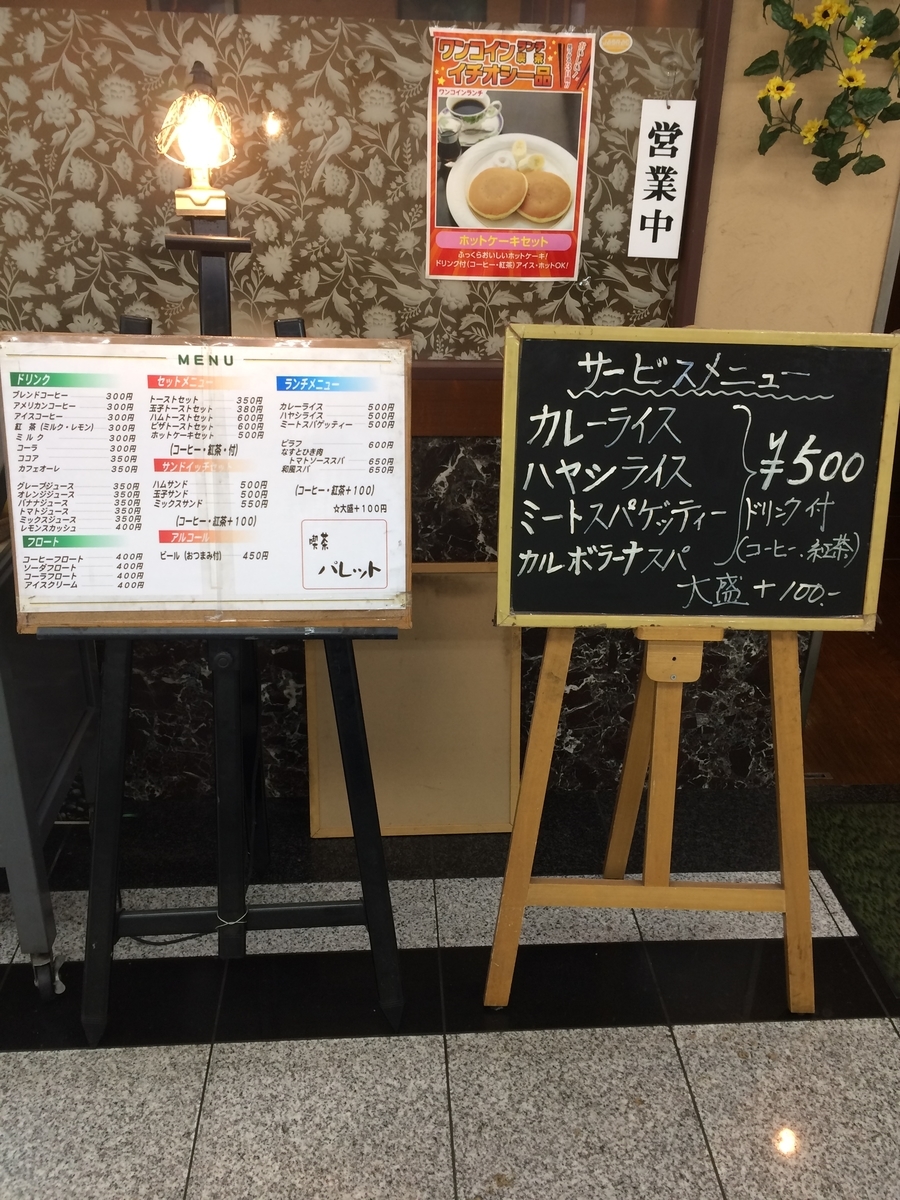 ワンコイン ランチ 喫茶
イチオシ一品
ワンコインランチ
ホットケーキセット
ふっくらおいしいホットケーキ!
ドリンク付(コーヒー・紅茶)アイス・ホットOK!
営業中
MENU
ドリンク
ブレンドコーヒー 300円
アメリカンコーヒー 300円
アイスコーヒー 300円
紅 茶(ミルク・レモン) 300円
ミ ル ク 300円
コーラ 300円
ココア 350円
カフェオーレ 350円
グレープジュース 350円
オレンジジュース 350円
バナナジュース 350円
トマトジュース 350円
ミックスジュース 350円
レモンスカッシュ 400円
フロート
コーヒーフロート 400円
ソーダフロート 400円
コーラフロート 400円
アイスクリーム 400円
セットメニュー
トーストセット 350円
玉子トーストセット 380円
ハムトーストセット 600円
ピザトーストセット 600円
ホットケーキセット 500円
(コーヒー・紅茶・付)
サンドイッチセット
ハムサンド 500円
玉子サンド 500円
ミックスサンド 550円
(コーヒー・紅茶+100)
アルコール
ビール(おつまみ付) 450円
ランチメニュー
カレーライス 500円
ハヤシライス 500円
ミートスパゲッティー 500円
ピラフ 600円
なすとひき肉
トマトソーススパ 650円
和風スパ 650円
(コーヒー・紅茶+100)
☆大盛+100円
喫茶
パレット
サービスメニュー
カレーライス
ハヤシライス
ミートスパゲッティー
カルボラーナスパ
¥500
ドリンク付
(コーヒー、紅茶)
大盛+100.-